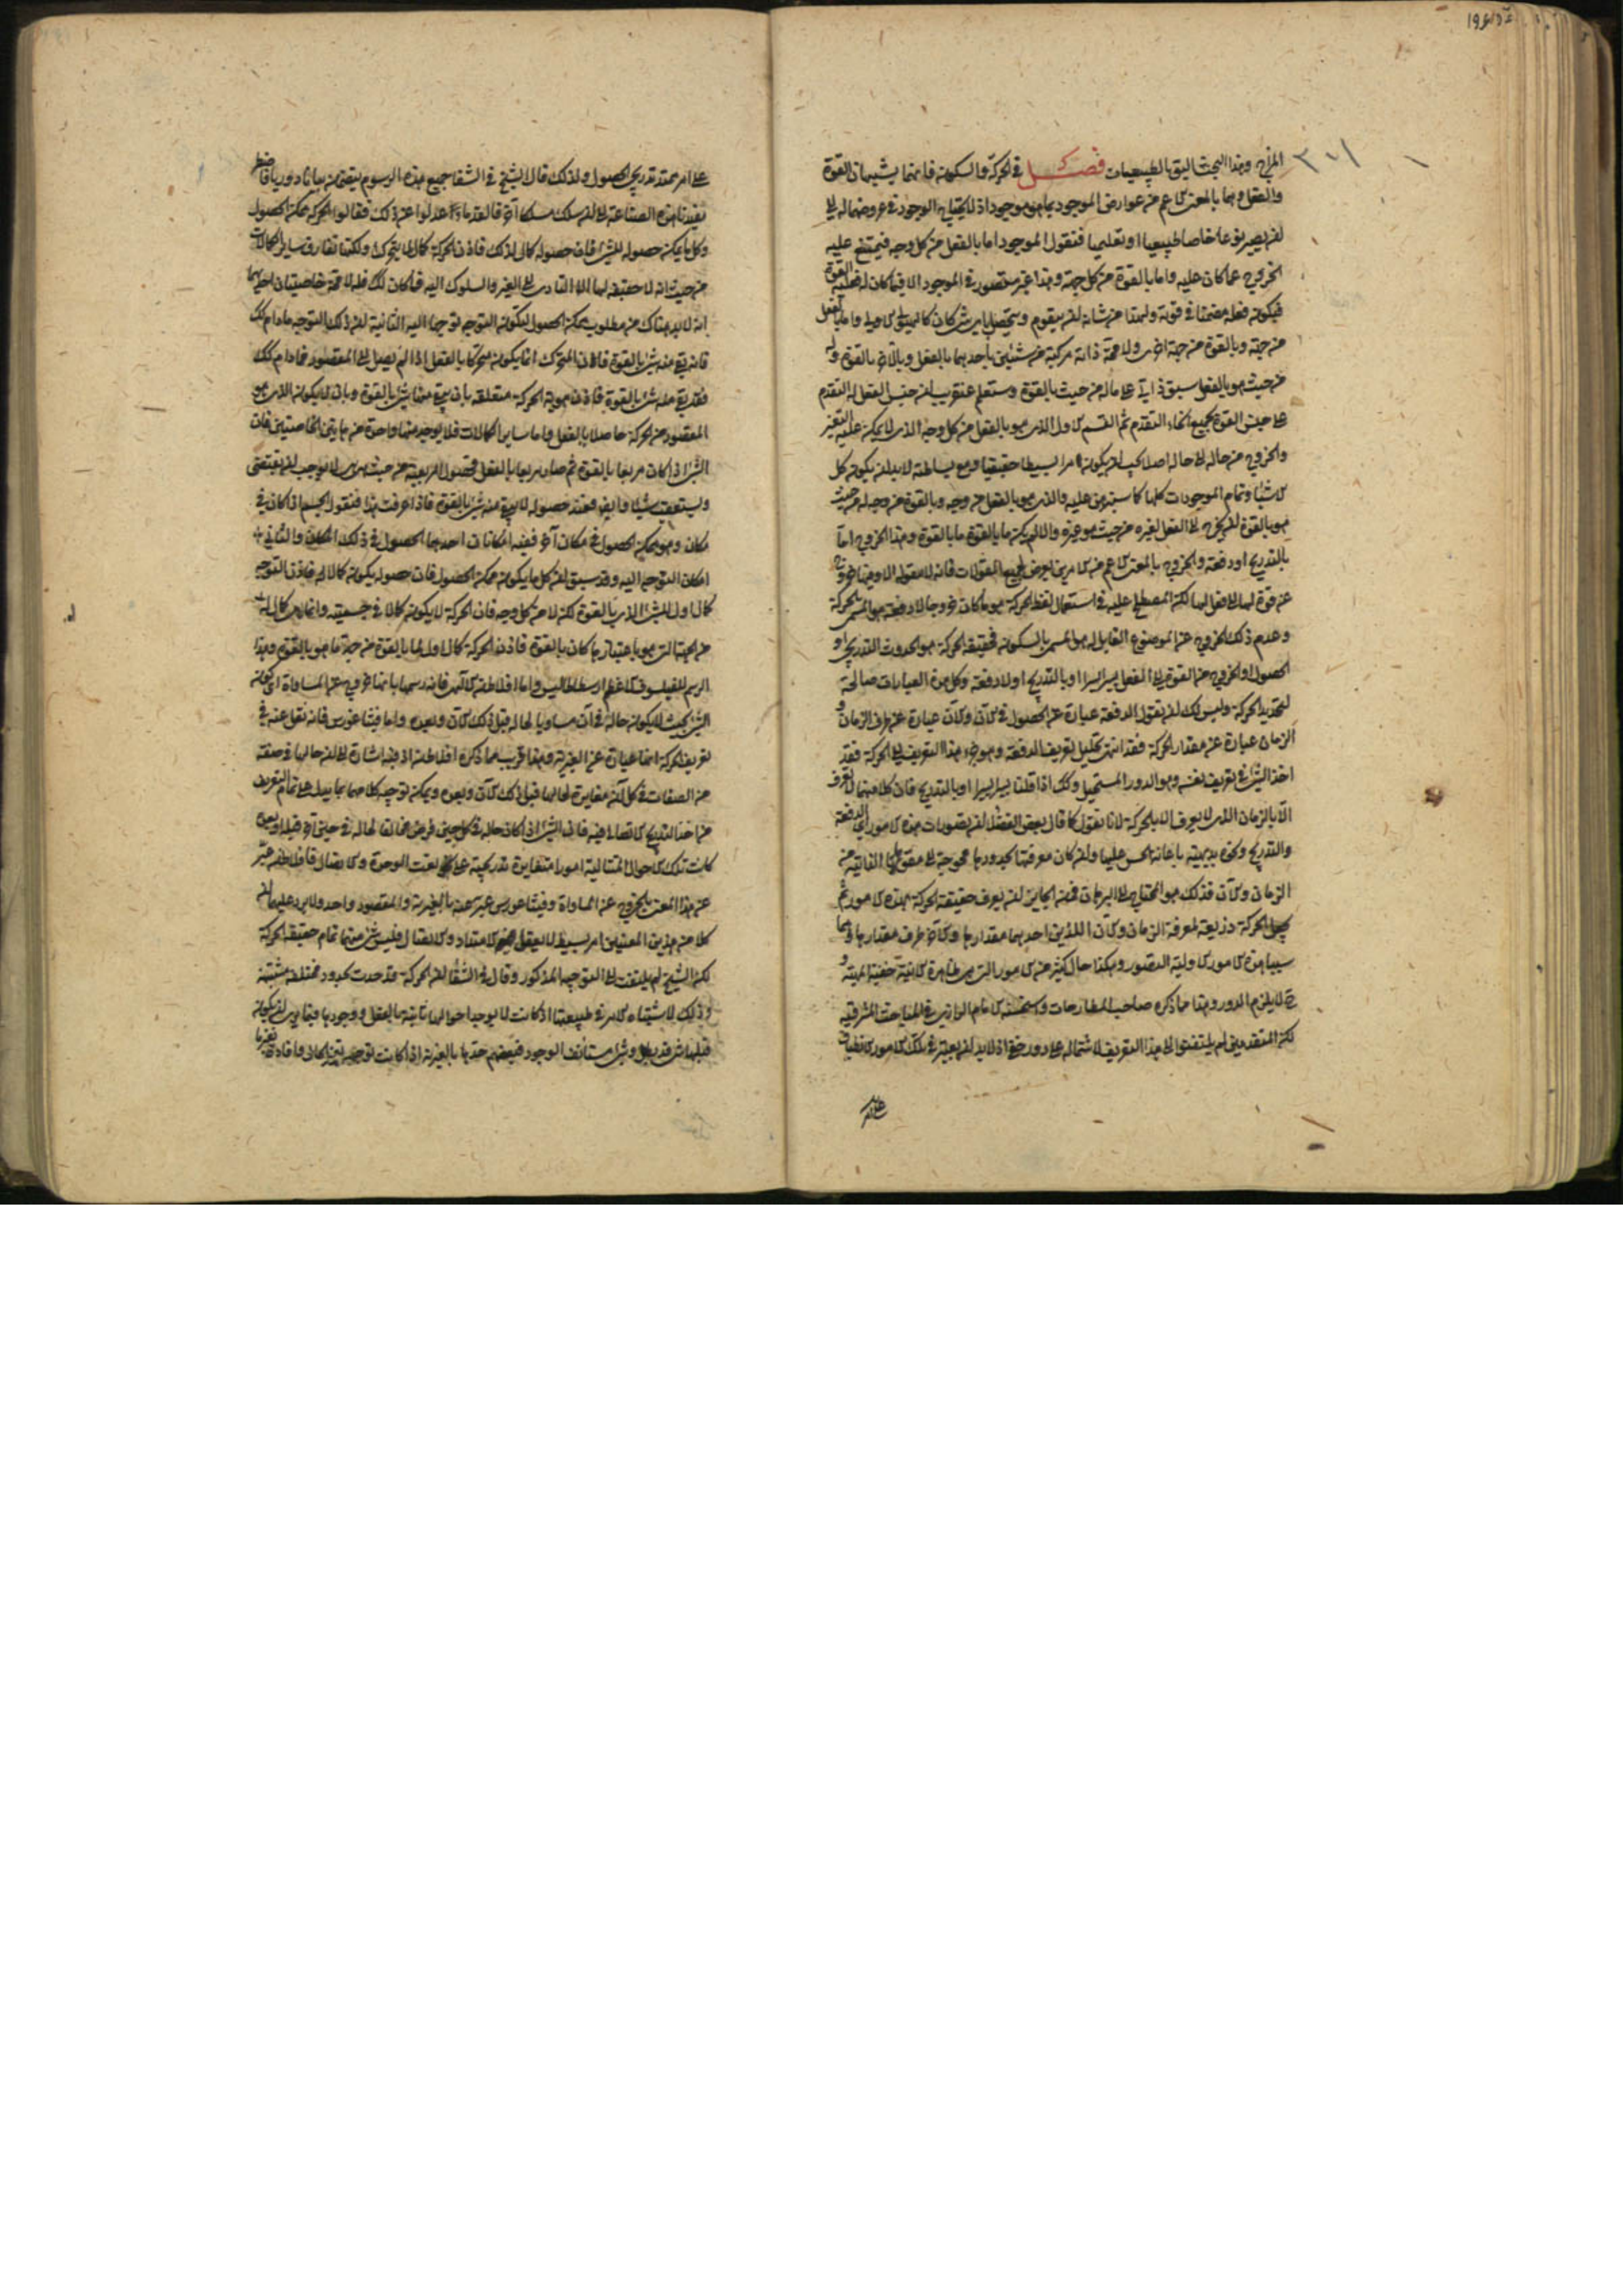 المزاج وهذا البحث اليق بالطبيعيات فصل في الحركة والسكون فانهما يشبهان القوة
والفعل وهما بالمعنى الاعم من عوارض الموجود بما هو موجود اذ لا يحتاج الموجود في عروضهما له الى
ان يصير نوعا خاصا طبيعيا او تعليميا فنقول الموجود اما بالفعل من كل وجه فيمتنع عليه
الخروج عما كان عليه واما بالقوة من كل جهة وهذا غير متصور في الموجود الا فيما كان له فعلية القوة
فيكون فعله مضمنا في قوته ولهذا من شانه ان يتقوم ويتحصل باي شي كان كالهيولى الاولى واما بالفعل
من جهة وبالقوة من جهة اخرى ولا محالة ذاته مركبة من شيئين باحدهما بالفعل وبالاخر بالقوة وله
من حيث هو بالفعل سبق ذاتي على ما له من حيث بالقوة وستعلم عنقريب ان جنس الفعل له التقدم
على جنس القوة بجميع انحاء التقدم ثم القسم الاول الذي هو بالفعل من كل وجه الذي لا يمكن عليه التغير
والخروج من حالة الى حالة اصلا يجب ان يكون امرا بسيطا حقيقيا ومع بساطته لا بد ان يكون كل
الاشياء وتمام الموجودات كلها كما سنبرهن عليه والذي هو بالفعل من وجه وبالقوة من وجه له من حيث
هو بالقوة ان يخرج الى الفعل لغيره من حيث هو غيره والا لم يكن ما بالقوة ما بالقوة وهذا الخروج اما
بالتدريج او دفعة والخروج بالمعنى الاعم من الامرين يعرض لجميع المقولات فانه لا مقولة الا وفيها خروج
عن قوة لها الى فعل لها لكن المصطلح عليه في استعمال لفظ الحركة هو ما كان خروجا لا دفعة هو المسمى بالحركة
وعدم ذلك الخروج عن الموضوع القابل له هو المسمى بالسكون فحقيقة الحركة هو الحدوث التدريجي او
الحصول او الخروج من القوة الى الفعل يسيرا يسيرا او بالتدريج او لا دفعة وكل هذه العبارات صالحة
لتحديد الحركة وليس لك ان تقول الدفعة عبارة عن الحصول في الان والان عبارة عن طرف الزمان و
الزمان عبارة عن مقدار الحركة فقد انتهى تحليل تعريف الدفعة وهو جزء هذا التعريف الى الحركة فقد
اخذ الشي في تعريف نفسه وهو الدور المستحيل وكك اذا قلنا يسيرا يسيرا او بالتدريج فان كلا منهما لا تعرف
الا بالزمان الذي لا يعرف الا بالحركة لانا نقول كما قال بعض الفضلاء ان تصورات هذه الامور اي الدفعة
والتدريج ونحوه بديهية باعانة الحس عليها وان كان معرفتها بحدودها محوجة الى مقوماتها الذاتية من
الزمان والان فذلك هو المحتاج الى البرهان فمن الجايز ان يعرف حقيقة الحركة بهذه الامور ثم
يجعل الحركة ذريعة لمعرفة الزمان والان اللذين احدهما مقدارها والاخر طرف مقدارها وهما
سببا هذه الامور الاولية التصور وهكذا حال كثير من الامور التي هي ظاهرة الانية خفية المهية و
ح لا يلزم الدور وهذا مما ذكره صاحب المطارحات واستحسنه الامام الرازي في المباحث المشرقية
لكن المتقدمين لم يلتفتوا الى هذا التعريف لاشتماله على دور خفي اذ لا بد ان يعتبر في تلك الامور الانطباق
على امر
على امر ممتد تدريجي الحصول ولذلك قال الشيخ في الشفا جميع هذه الرسوم يتضمن بيانا دوريا فاضطر
مفيدنا هذه الصناعة الى ان سلك مسلكا اخر فالقدماء عدلوا عن ذلك فقالوا الحركة ممكنة الحصول
وكل ما يمكن حصوله للشي فان حصوله كمال لذلك فاذن الحركة كمال لما يتحرك ولكنها تفارق ساير الكمالات
من حيث انه لا حقيقة لها الا التادي الى الغير والسلوك اليه فما كان كك فله لا محالة خاصيتان احديهما
انه لا بد هناك من مطلوب ممكن الحصول ليكون التوجه توجها اليه الثانية ان ذلك التوجه ما دام كك
فانه بقي منه شي بالقوة فان المتحرك انما يكون متحركا بالفعل اذا لم يصل الى المقصود فما دام كك
فقد بقي منه شي بالقوة فاذن هوية الحركة متعلقة بان يبقى منها شي بالقوة وبان لا يكون الذي هو
المقصود من الحركة حاصلا بالفعل واما ساير الكمالات فلا يوجد فيها واحدة من هاتين الخاصيتين فان
الشي اذا كان مربعا بالقوة ثم صار مربعا بالفعل فحصول المربعية من حيث هي هي لا يوجب ان يقتضي
ويستعقب شيئا وايضا فعند حصوله لا يبقى منه شي بالقوة فاذا عرفت هذا فنقول الجسم اذا كان في
مكان وهو ممكن الحصول في مكان اخر ففيه امكانان احدهما الحصول في ذلك المكان والثاني
امكان التوجه اليه وقد سبق ان كل ما يكون ممكن الحصول فان حصوله يكون كمالا له فاذن التوجه
كمال اول للشي الذي بالقوة لكن لا من كل وجه فان الحركة لا يكون كمالا في جسميته وانما هي كمال له
من الجهة التي هو باعتبارها كان بالقوة فاذن الحركة كمال اول لما بالقوة من جهة ما هو بالقوة وهذا
الرسم للفيلسوف الاعظم ارسطاطاليس واما افلاطن الالهي فانه رسمها بانها خروج عن المساواة اي كون
الشي بحيث لا يكون حاله في ان مساويا لحاله قبل ذلك الان وبعده واما فيثاغورس فانه نقل عنه في
تعريف الحركة انها عبارة عن الغيرية وهذا قريب مما ذكره افلاطن اذ فيه اشارة الى ان حالها في صفة
من الصفات في كل ان مغايرة لحالها قبل ذلك الان وبعده ويمكن توجيه كلامهما بما يدل على تمام التعريف
من اخذ التدريج الاتصالي فيه فان الشي اذا كان حاله في كل حين فرض مخالفا لحاله في حين اخر قبله او بعده
كانت تلك الاحوال المتتالية امورا متغايرة تدريجية على نعت الوحدة والاتصال فافلاطن عبر
عن هذا المعنى بالخروج عن المساواة وفيثاغورس عبر عنه بالغيرية والمقصود واحد ولا يرد عليهما ان
كلا من هذين المعنيين امر بسيط لا يعقل فيه الامتداد والاتصال فليس شي منهما تمام حقيقة الحركة
لكن الشيخ لم يلتفت الى التوجيه المذكور وقال في الشفا ان الحركة قد حدت بحدود مختلفة مشتبهة
وذلك لاشتباه الامر في طبيعتها اذ كانت لا يوجد احوالها ثابتة بالفعل ووجودها فيما يرى ان يكون
قبلها شي قد بطل وشي مستانف الوجود فبعضهم حدها بالغيرية اذ كانت توجب تغيرا للحال وافادة لغيرها